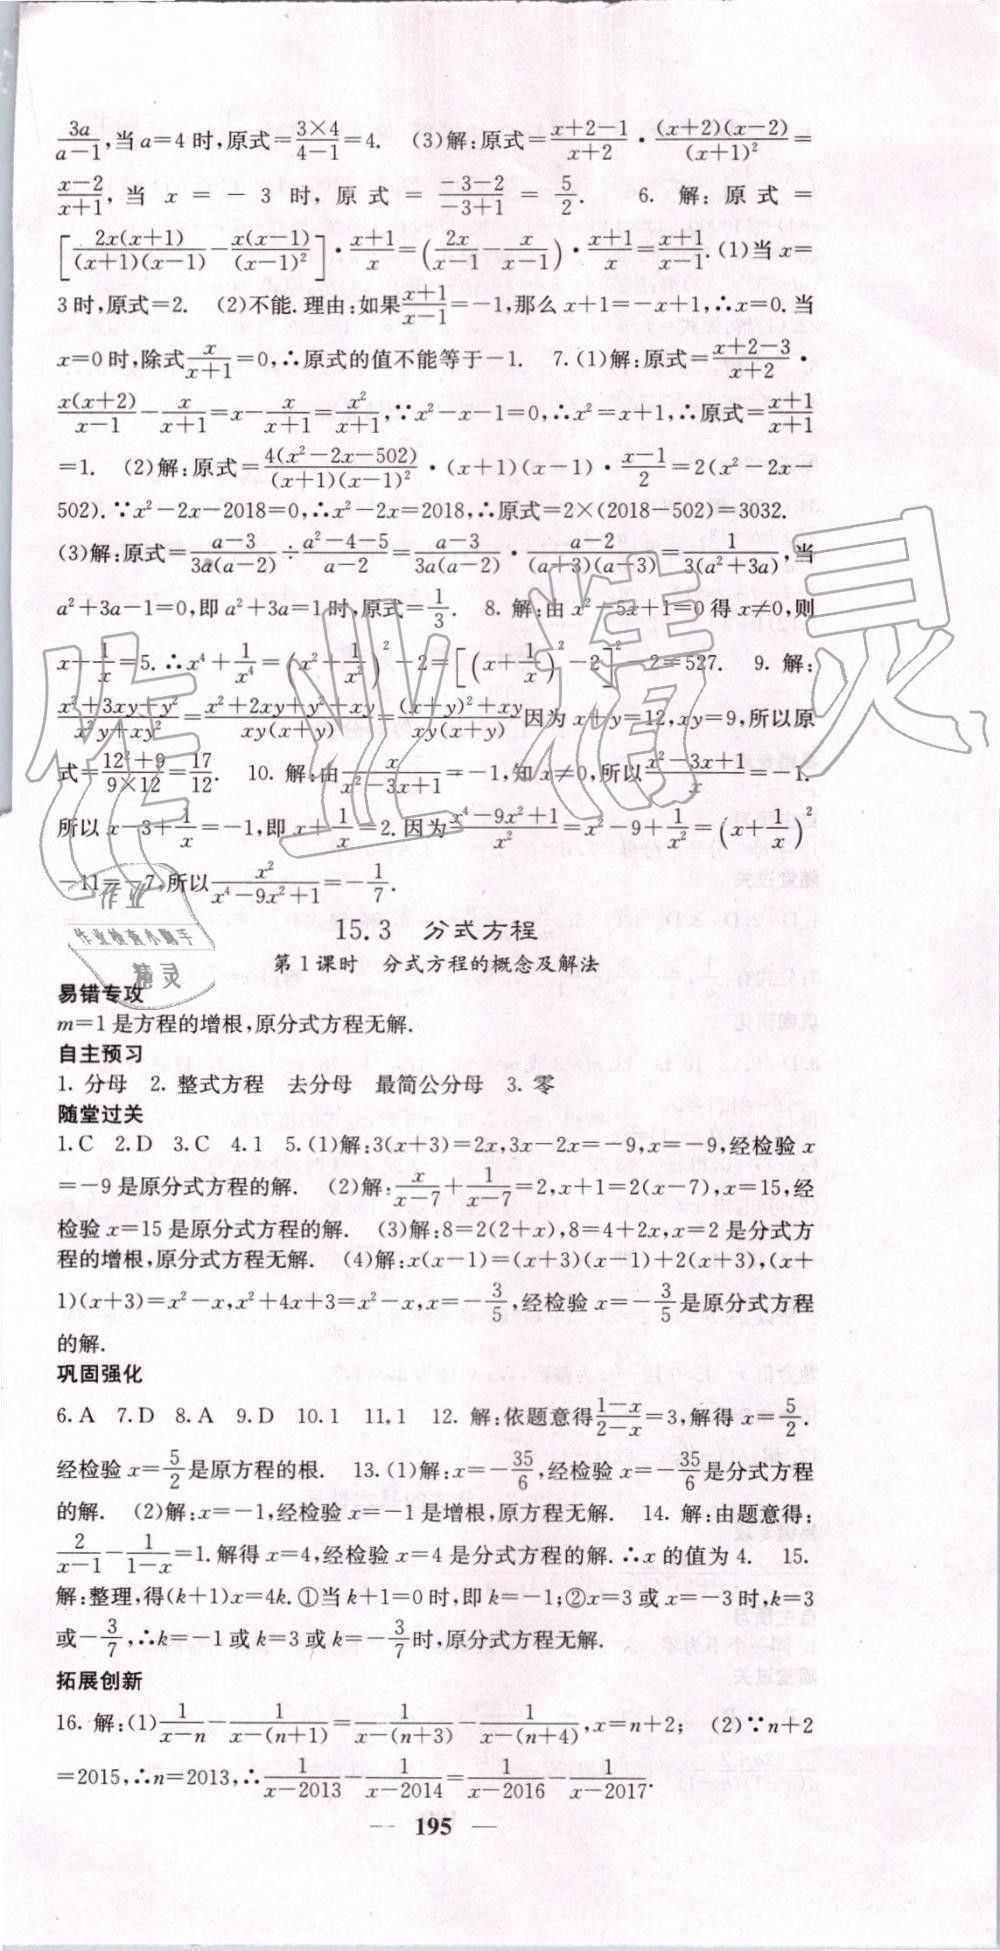 3a/(a-1),当a=4时,原式=(3×4)/(4-1)=4. (3)解:原式=(x+2-1)/(x+2)·(x+2)(x-2)/(x+1)²=
(x-2)/(x+1),当x=-3时,原式=(-3-2)/(-3+1)=5/2. 6. 解:原式=
[2x(x+1)/(x+1)(x-1)-x(x-1)/(x-1)²]·(x+1)/x=(2x/(x-1)-x/(x-1))·(x+1)/x=(x+1)/(x-1).(1)当x=
3时,原式=2. (2)不能.理由:如果(x+1)/(x-1)=-1,那么x+1=-x+1,∴x=0.当
x=0时,除式x/(x+1)=0,∴原式的值不能等于-1. 7.(1)解:原式=(x+2-3)/(x+2)·
x(x+2)/(x-1)-x/(x+1)=x-x/(x+1)=x²/(x+1),∵x²-x-1=0,∴x²=x+1,∴原式=(x+1)/(x+1)
=1. (2)解:原式=4(x²-2x-502)/(x+1)(x-1)²·(x+1)(x-1)·(x-1)/2=2(x²-2x-
502).∵x²-2x-2018=0,∴x²-2x=2018,∴原式=2×(2018-502)=3032.
(3)解:原式=(a-3)/3a(a-2)÷(a²-4-5)/(a-2)=(a-3)/3a(a-2)·(a-2)/(a+3)(a-3)=1/3(a²+3a),当
a²+3a-1=0,即a²+3a=1时,原式=1/3. 8. 解:由x²-5x+1=0得x≠0,则
x+1/x=5.∴x⁴+1/x⁴=(x²+1/x²)²-2=[(x+1/x)²-2]²-2=527. 9. 解:
(x²+3xy+y²)/(x²y+xy²)=(x²+2xy+y²+xy)/xy(x+y)=((x+y)²+xy)/xy(x+y)因为x+y=12,xy=9,所以原
式=(12²+9)/(9×12)=17/12. 10. 解:由x/(x²-3x+1)=-1,知x≠0,所以(x²-3x+1)/x=-1.
所以x-3+1/x=-1,即x+1/x=2.因为(x⁴-9x²+1)/x²=x²-9+1/x²=(x+1/x)²
-11=-7,所以x²/(x⁴-9x²+1)=-1/7.
15.3 分式方程
第1课时 分式方程的概念及解法
易错专攻
m=1是方程的增根,原分式方程无解.
自主预习
1. 分母 2. 整式方程 去分母 最简公分母 3. 零
随堂过关
1.C 2.D 3.C 4.1 5.(1)解:3(x+3)=2x,3x-2x=-9,x=-9,经检验x
=-9是原分式方程的解. (2)解:x/(x-7)+1/(x-7)=2,x+1=2(x-7),x=15,经
检验x=15是原分式方程的解. (3)解:8=2(2+x),8=4+2x,x=2是分式方
程的增根,原分式方程无解. (4)解:x(x-1)=(x+3)(x-1)+2(x+3),(x+
1)(x+3)=x²-x,x²+4x+3=x²-x,x=-3/5,经检验x=-3/5是原分式方程
的解.
巩固强化
6.A 7.D 8.A 9.D 10.1 11.1 12. 解:依题意得(1-x)/(2-x)=3,解得x=5/2.
经检验x=5/2是原方程的根. 13.(1)解:x=-35/6,经检验x=-35/6是分式方程
的解. (2)解:x=-1,经检验x=-1是增根,原方程无解. 14. 解:由题意得:
2/(x-1)-1/(1-x)=1.解得x=4,经检验x=4是分式方程的解.∴x的值为4. 15.
解:整理,得(k+1)x=4k.①当k+1=0时,即k=-1;②x=3或x=-3时,k=3
或-3/7,∴k=-1或k=3或k=-3/7时,原分式方程无解.
拓展创新
16. 解:(1)1/(x-n)-1/(x-(n+1))=1/(x-(n+3))-1/(x-(n+4)),x=n+2; (2)∵n+2
=2015,∴n=2013,∴1/(x-2013)-1/(x-2014)=1/(x-2016)-1/(x-2017).
— 195 —
作业精灵
作业
作业检查小助手
精灵